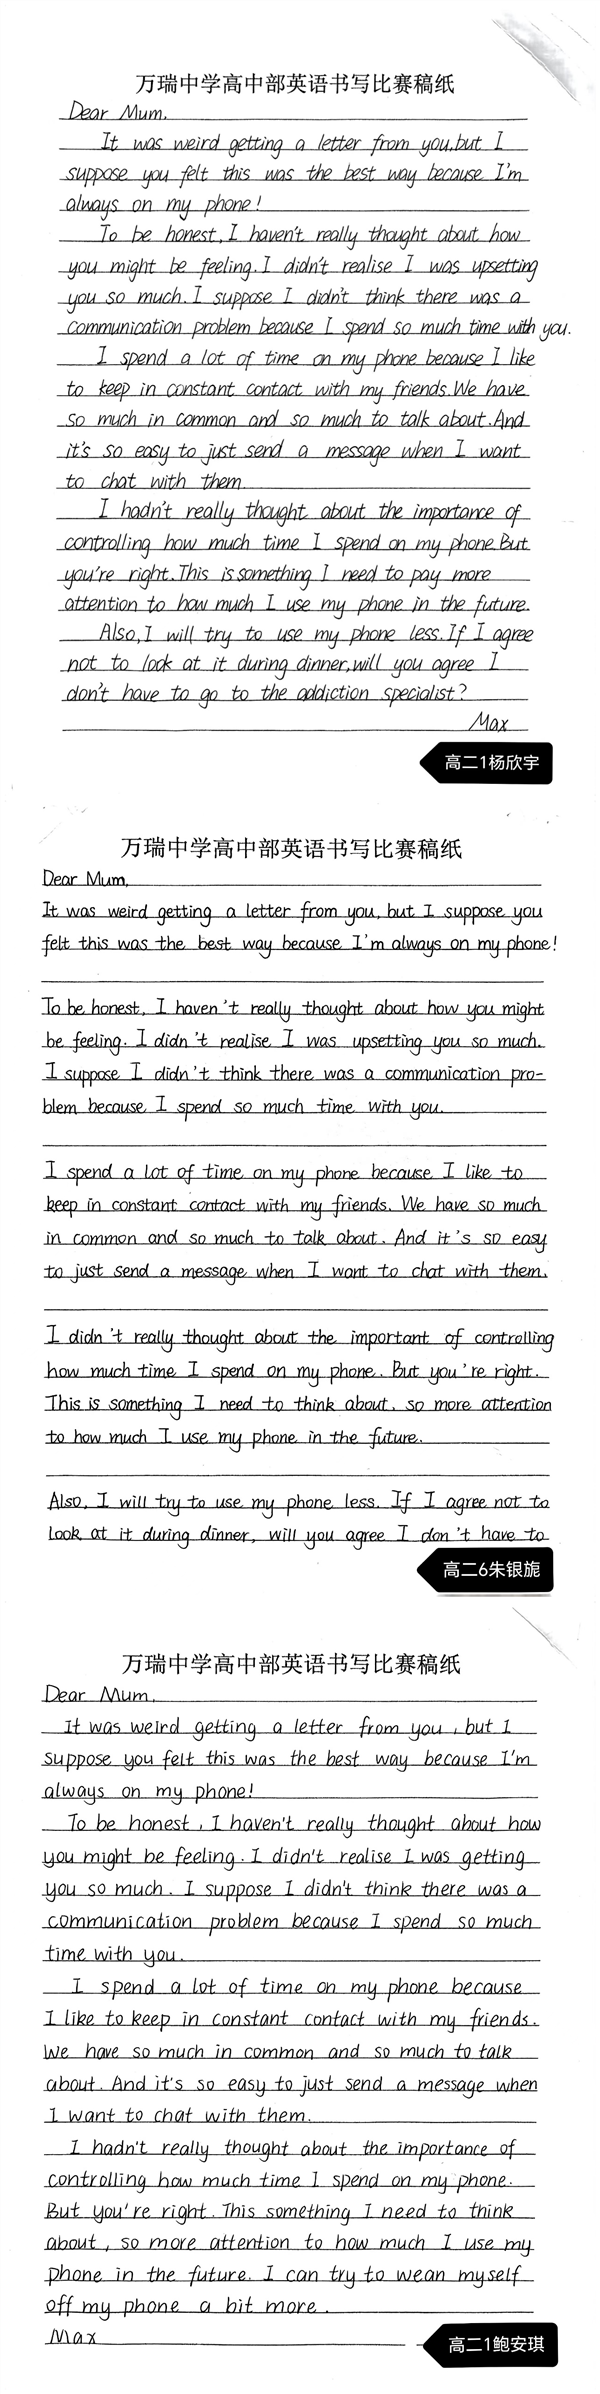 万瑞中学高中部英语书写比赛稿纸
Dear Mum,
It was weird getting a letter from you, but I
suppose you felt this was the best way because I'm
always on my phone!
To be honest, I haven't really thought about how
you might be feeling. I didn't realise I was upsetting
you so much. I suppose I didn't think there was a
communication problem because I spend so much time with you.
I spend a lot of time on my phone because I like
to keep in constant contact with my friends. We have
so much in common and so much to talk about. And
it's so easy to just send a message when I want
to chat with them.
I hadn't really thought about the importance of
controlling how much time I spend on my phone. But
you're right. This is something I need to pay more
attention to how much I use my phone in the future.
Also, I will try to use my phone less. If I agree
not to look at it during dinner, will you agree I
don't have to go to the addiction specialist?
Max
高二1杨欣宇
万瑞中学高中部英语书写比赛稿纸
Dear Mum,
It was weird getting a letter from you, but I suppose you
felt this was the best way because I'm always on my phone!
To be honest, I haven't really thought about how you might
be feeling. I didn't realise I was upsetting you so much.
I suppose I didn't think there was a communication pro-
blem because I spend so much time with you.
I spend a lot of time on my phone because I like to
keep in constant contact with my friends. We have so much
in common and so much to talk about. And it's so easy
to just send a message when I want to chat with them.
I didn't really thought about the important of controlling
how much time I spend on my phone. But you're right.
This is something I need to think about, so more attention
to how much I use my phone in the future.
Also, I will try to use my phone less. If I agree not to
look at it during dinner, will you agree I don't have to
高二6朱银旎
万瑞中学高中部英语书写比赛稿纸
Dear Mum,
It was weird getting a letter from you, but I
suppose you felt this was the best way because I'm
always on my phone!
To be honest, I haven't really thought about how
you might be feeling. I didn't realise I was getting
you so much. I suppose I didn't think there was a
communication problem because I spend so much
time with you.
I spend a lot of time on my phone because
I like to keep in constant contact with my friends.
We have so much in common and so much to talk
about. And it's so easy to just send a message when
I want to chat with them.
I hadn't really thought about the importance of
controlling how much time I spend on my phone.
But you're right. This something I need to think
about, so more attention to how much I use my
phone in the future. I can try to wean myself
off my phone a bit more.
Max
高二1鲍安琪